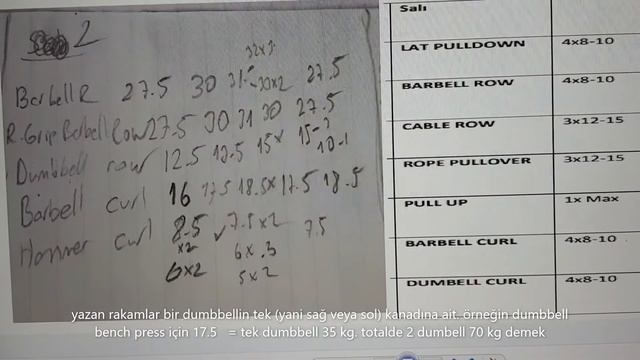 2
32x2
Barbell R 27.5 30 31.5 30x2 27.5
R. Grip Barbell Row 27.5 30 31 30 27.5
Dumbbell row 12.5 12.5 15x 15-
10-1
Barbell curl 16 17.5 18.5x 17.5 18.5
Hammer curl 8.5 7.5x2 7.5
x2 6x.3
6x2 5x2
Salı
LAT PULLDOWN 4x8-10
BARBELL ROW 4x8-10
CABLE ROW 3x12-15
ROPE PULLOVER 3x12-15
PULL UP 1x Max
BARBELL CURL 4x8-10
DUMBELL CURL 4x8-10
yazan rakamlar bir dumbbellin tek (yani sağ veya sol) kanadına ait. örneğin dumbbell
bench press için 17.5 = tek dumbbell 35 kg. totalde 2 dumbell 70 kg demek